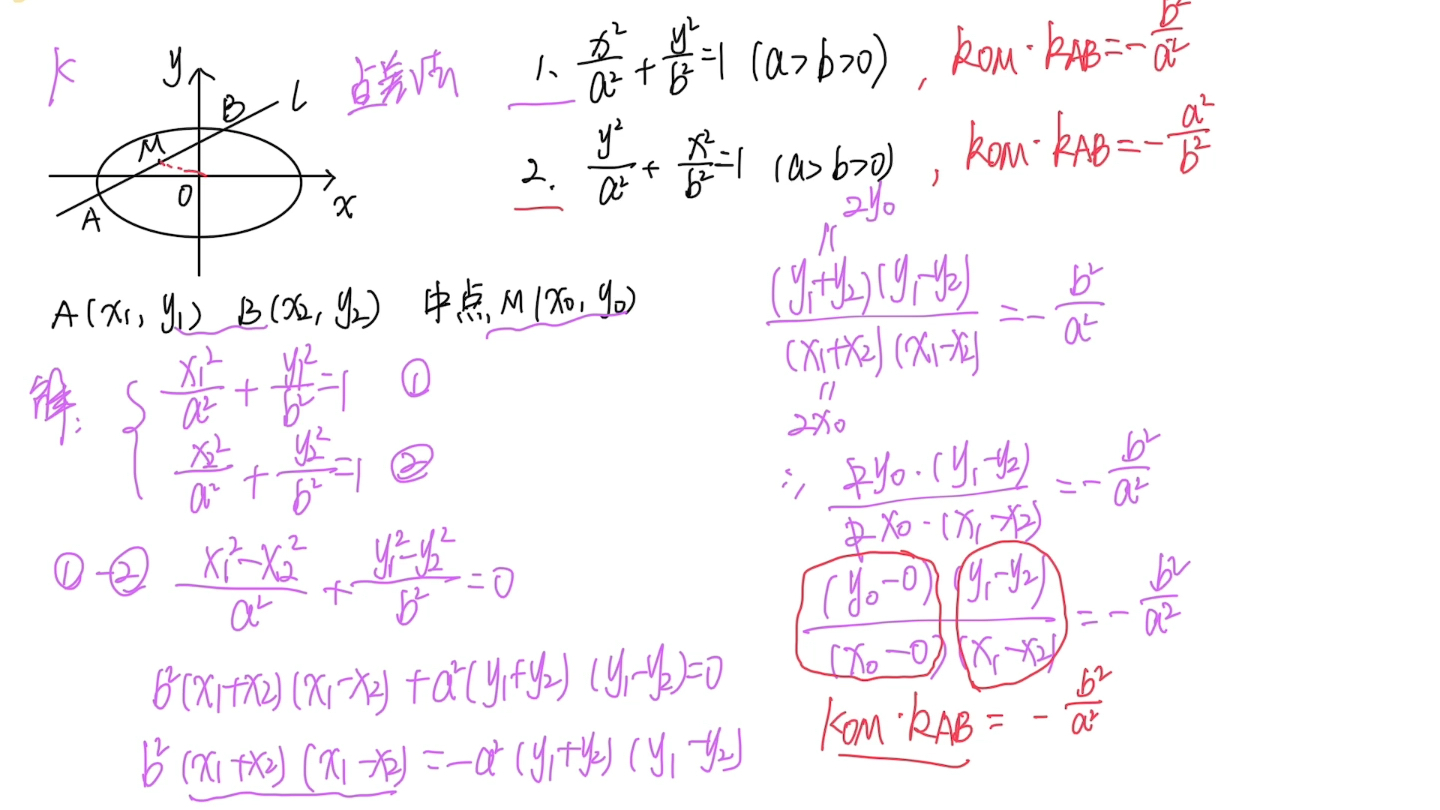 k
y
B
l
M
O
x
A
点差法
1、x²/a² + y²/b² = 1 (a>b>0) , kOM · kAB = -b²/a²
2. y²/a² + x²/b² = 1 (a>b>0) , kOM · kAB = -a²/b²
A(x₁, y₁) B(x₂, y₂) 中点 M(x₀, y₀)
解: { x₁²/a² + y₁²/b² = 1 ①
x₂²/a² + y₂²/b² = 1 ②
①-② (x₁²-x₂²)/a² + (y₁²-y₂²)/b² = 0
b²(x₁+x₂)(x₁-x₂) + a²(y₁+y₂)(y₁-y₂) = 0
b²(x₁+x₂)(x₁-x₂) = -a²(y₁+y₂)(y₁-y₂)
2y₀
=
(y₁+y₂)(y₁-y₂)/(x₁+x₂)(x₁-x₂) = -b²/a²
=
2x₀
∴ 2y₀·(y₁-y₂)/2x₀·(x₁-x₂) = -b²/a²
(y₀-0)(y₁-y₂)/(x₀-0)(x₁-x₂) = -b²/a²
kOM · kAB = -b²/a²